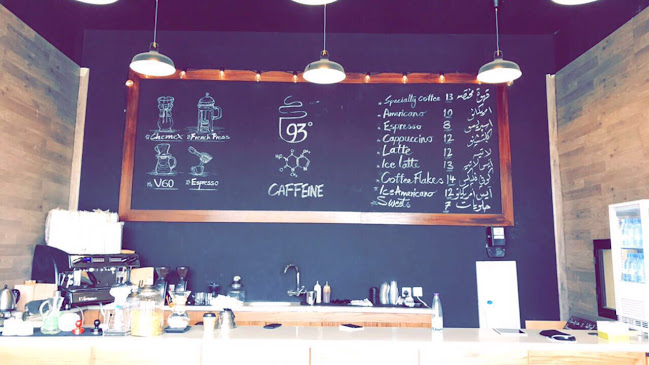 Chemex
French Press
V60
Espresso
93°
CAFFEINE
Specialty Coffee 13 قهوة مختصه
Americano 10 امريكانو
Espresso 8 اسبريسو
Cappuccino 12 كابتشينو
Latte 12 لاتيه
Ice latte 13 ايس لاتيه
Coffee Flakes 14 كوفي فليكس
Ice Americano 12 ايس امريكانو
Sweets 7 حلويات